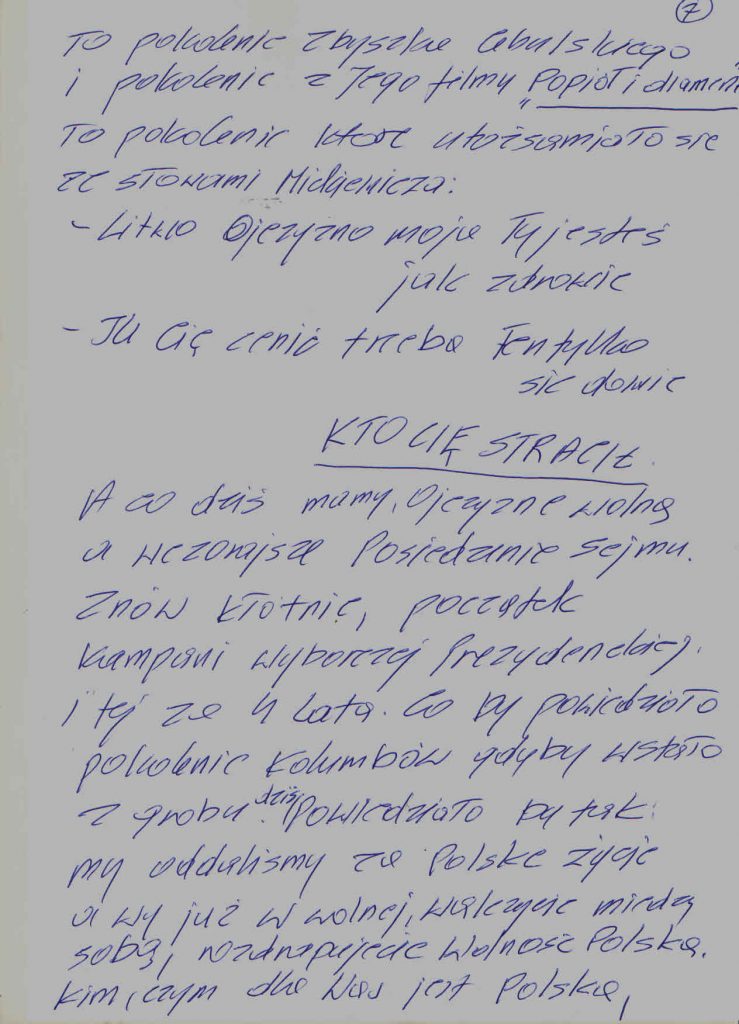 7
To pokolenie Zbyszka Cybulskiego
i pokolenie z Jego filmy "Popiół i diament
To pokolenie które utożsamiało się
ze słowami Mickiewicza:
- Litwo Ojczyzno moja Ty jesteś
jak zdrowie
- Ile Cię cenić trzeba Ten tylko
się dowie
KTO CIĘ STRACIŁ.
A co dziś mamy, Ojczyznę wolną
a wczorajsze Posiedzenie Sejmu.
Znów kłótnie, początek
kampani wyborczej Prezydenckiej.
i tej za 4 lata. Co by powiedziało
pokolenie Kolumbów gdyby wstało
z grobu dziś. Powiedziało by tak:
my oddaliśmy za Polskę życie
a wy już w wolnej, walczycie między
sobą, rozdrapujecie wolność Polską.
kim, czym dla Was jest Polska,